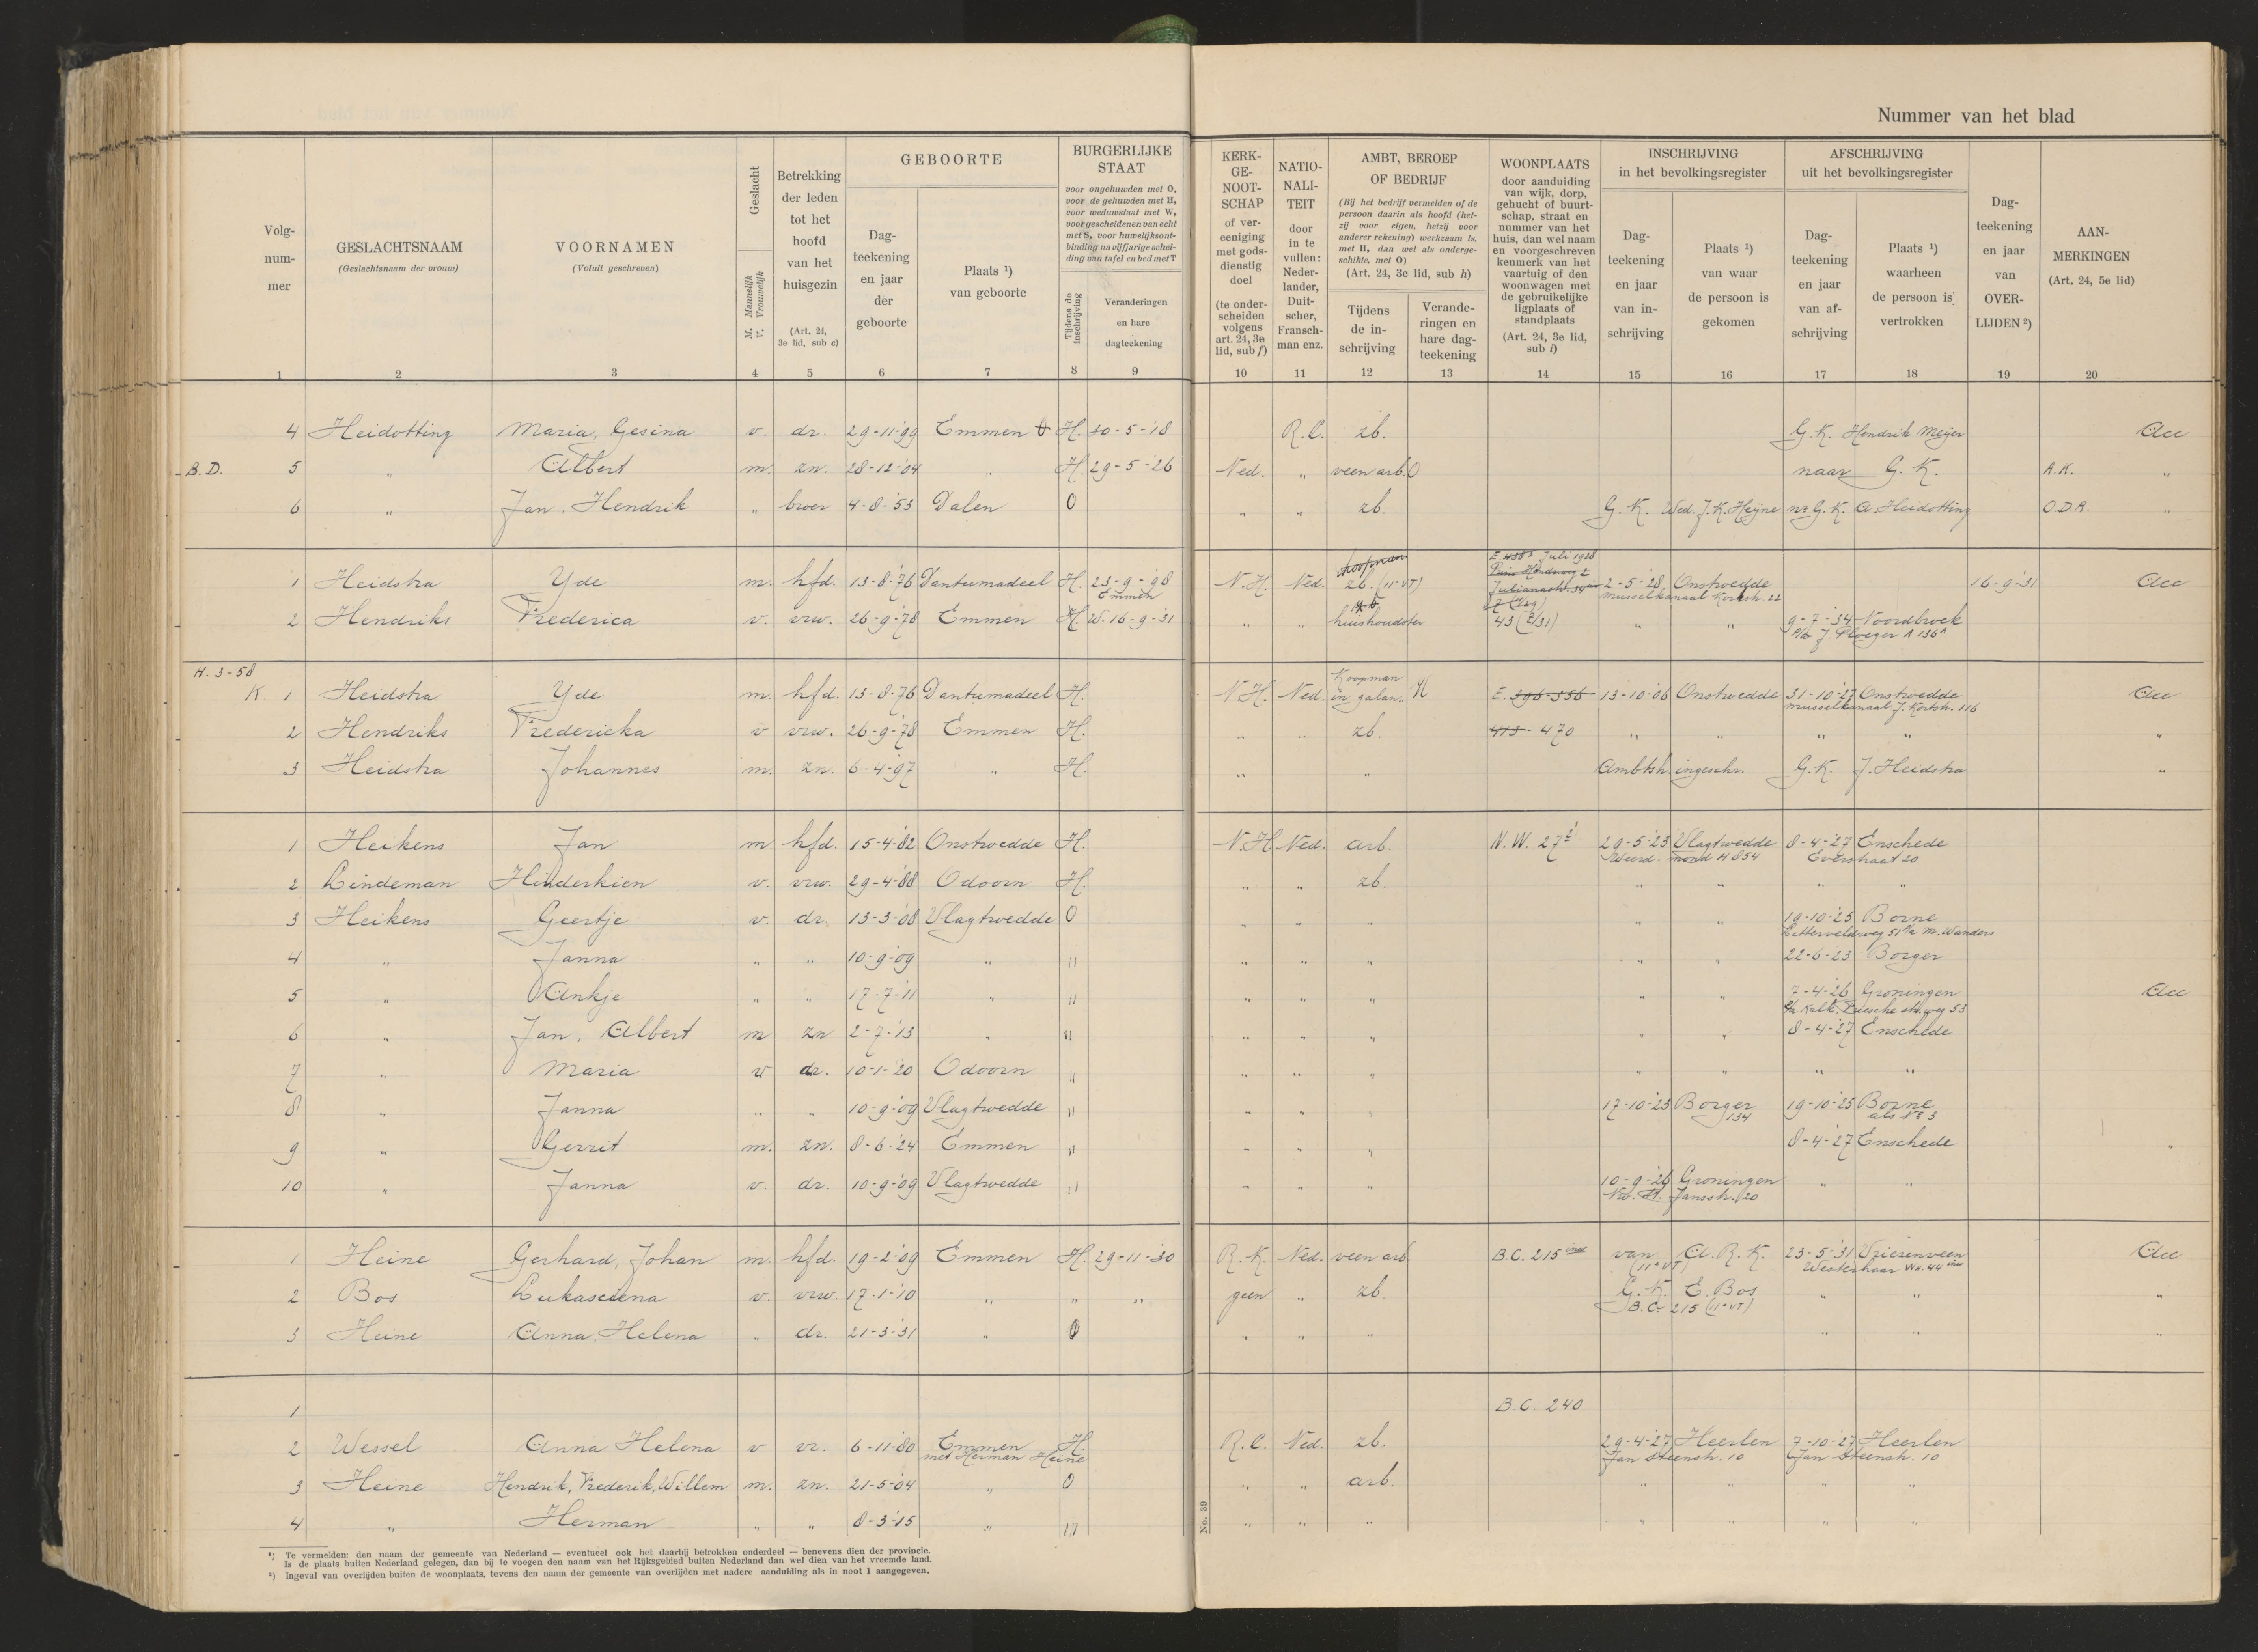 Nummer van het blad
Volg-
num-
mer
GESLACHTSNAAM
(Geslachtsnaam der vrouw)
VOORNAMEN
(Voluit geschreven)
Geslacht
M. Mannelijk
V. Vrouwelijk
Betrekking
der leden
tot het
hoofd
van het
huisgezin
(Art. 24,
3e lid, sub c)
GEBOORTE
Dag-
teekening
en jaar
der
geboorte
Plaats ¹)
van geboorte
BURGERLIJKE
STAAT
voor ongehuwden met O,
voor de gehuwden met H,
voor weduwstaat met W,
voor gescheidenen van echt
met S, voor huwelijksont-
binding na vijfjarige schei-
ding van tafel en bed met T
Tijdens de
inschrijving
Veranderingen
en hare
dagteekening
KERK-
GE-
NOOT-
SCHAP
of ver-
eeniging
met gods-
dienstig
doel
(te onder-
scheiden
volgens
art. 24, 3e
lid, sub f)
NATIO-
NALI-
TEIT
door
in te
vullen:
Neder-
lander,
Duit-
scher,
Fransch-
man enz.
AMBT, BEROEP
OF BEDRIJF
(Bij het bedrijf vermelden of de
persoon daarin als hoofd (het-
zij voor eigen, hetzij voor
anderer rekening) werkzaam is,
met H, dan wel als onderge-
schikte, met O)
(Art. 24, 3e lid, sub h)
Tijdens
de in-
schrijving
Verande-
ringen en
hare dag-
teekening
WOONPLAATS
door aanduiding
van wijk, dorp,
gehucht of buurt-
schap, straat en
nummer van het
huis, dan wel naam
en voorgeschreven
kenmerk van het
vaartuig of den
woonwagen met
de gebruikelijke
ligplaats of
standplaats
(Art. 24, 3e lid,
sub i)
INSCHRIJVING
in het bevolkingsregister
Dag-
teekening
en jaar
van in-
schrijving
Plaats ¹)
van waar
de persoon is
gekomen
AFSCHRIJVING
uit het bevolkingsregister
Dag-
teekening
en jaar
van af-
schrijving
Plaats ¹)
waarheen
de persoon is
vertrokken
Dag-
teekening
en jaar
van
OVER-
LIJDEN ²)
AAN-
MERKINGEN
(Art. 24, 5e lid)
1 2 3 4 5 6 7 8 9 10 11 12 13 14 15 16 17 18 19 20
4 Heidotting Maria, Gesina v. dr. 29-11-'99 Emmen H. 30-5-'18 R.C. zb. G.K. Hendrik Meijer Acc
B.D. 5 " Albert m. zn. 28-12-'04 " H. 29-5-'26 Ned. " veen arb. O naar G.K. A.K. "
6 " Jan, Hendrik " broer 4-8-'53 Dalen O " " zb. G.K. Wed. J.K. Heijne nr G.K. A. Heidotting O.D.R. "
E 458 Juli 1928
koopman
1 Heidstra Yde m. hfd. 13-8-'76 Dantumadeel H. 23-9-'98 N.H. Ned. zb. (11-VT) Julianastr. 34 2-5-'28 Onstwedde 16-9-'31 Acc
Emmen Musselkanaal Kortestr. 22
2 Hendriks Frederica v. vrw. 26-9-'78 Emmen H W. 16-9-'31 " " huishoudster 43 (2/31) " " 9-7-'34 Noordbroek
p/a J. Ploeger A 136ᴬ
H. 3-58
Koopman
K. 1 Heidstra Yde m. hfd. 13-8-'76 Dantumadeel H. N.H. Ned. in galan. H E. 396-556 13-10-'06 Onstwedde 31-10-'27 Onstwedde Acc
Musselkanaal J. Kortstr. 116
2 Hendriks Fredericka v vrw. 26-9-'78 Emmen H. " " zb. 413-470 " " " " "
3 Heidstra Johannes m. zn. 6-4-'97 " H. " " Ambtsh. ingeschr. G.K. J. Heidstra "
1 Heikens Jan m. hfd. 15-4-'82 Onstwedde H. N.H Ned. arb. N.W. 27 29-5-'23 Vlagtwedde 8-4-'27 Enschede
mond H 854 Everstraat 20
2 Lindeman Hinderkien v. vrw. 29-4-'88 Odoorn H. " " zb. " " " "
3 Heikens Geertje v. dr. 13-3-'08 Vlagtwedde O " " " " " 19-10-'25 Borne
51 p/a M. Wanders
4 " Janna " " 10-9-'09 " " " " " " " 22-6-23 Borger
5 " Ankje " " 17-7-'11 " " " " " " " 7-4-'26 Groningen Acc
6 " Jan, Albert m zn 2-7-'13 " " " " " " " 8-4-'27 Enschede
7 " Maria v dr. 10-1-'20 Odoorn " " " " " " " "
8 " Janna " " 10-9-'09 Vlagtwedde " " " " 17-10-'23 Borger 19-10-'25 Borne
134 als No 3
9 " Gerrit m. zn. 8-6-'24 Emmen " " " " 8-4-'27 Enschede "
10 " Janna v. dr. 10-9-'09 Vlagtwedde " " " " 10-9-'26 Groningen " "
Nw. St. Jansstr. 20
1 Heine Gerhard, Johan m. hfd. 19-2-'09 Emmen H. 29-11-'30 R.K. Ned. veen arb. B.C. 215 van A.R.K. 23-5-'31 Vriezenveen Acc
(11-VT) Westerhaar Wn. 44
2 Bos Lukasciena v. vrw. 17-1-'10 " " " geen " zb. G.K. E. Bos " " "
B.C. 215 (11-VT)
3 Heine Anna, Helena " dr. 21-3-'31 " O " " " " " "
1 B.C. 240
2 Wessel Anna Helena v vr. 6-11-'80 Emmen H R.C. Ned. zb. 29-4-'27 Heerlen 7-10-'27 Heerlen
met Herman Heine Jan Steenstr. 10 Jan Steenstr. 10
3 Heine Hendrik, Frederik, Willem m. zn. 21-5-'04 " O " " arb. " " " "
4 " Herman " " 8-3-'15 " " " " " " " " "
No. 39
¹) Te vermelden: den naam der gemeente van Nederland — eventueel ook het daarbij betrokken onderdeel — benevens dien der provincie.
Is de plaats buiten Nederland gelegen, dan bij te voegen den naam van het Rijksgebied buiten Nederland dan wel dien van het vreemde land.
²) Ingeval van overlijden buiten de woonplaats, tevens den naam der gemeente van overlijden met nadere aanduiding als in noot 1 aangegeven.